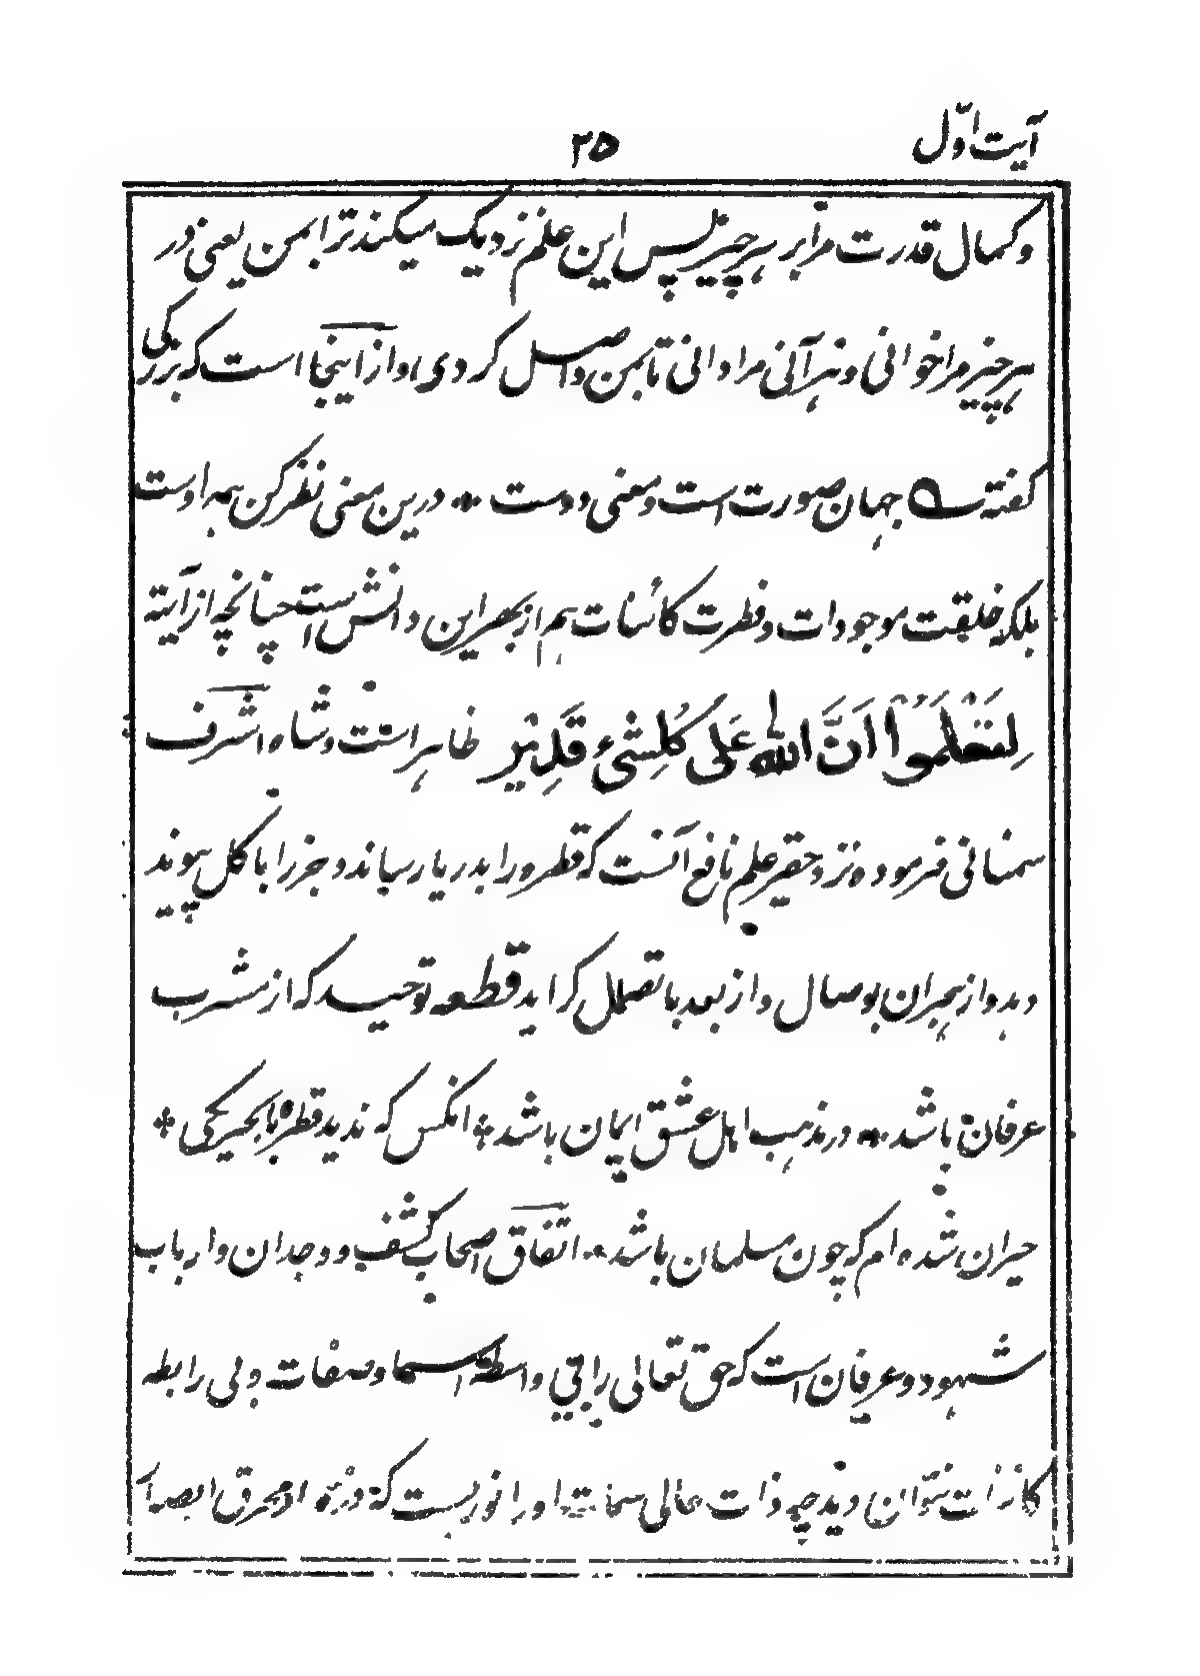 آیت اوّل
۲۵
وکمال قدرت مرا بر ہرچیز پس این علم نزدیک میکند ترا بمن یعنی در
ہرچیز مرا خوانی و ہر آنی مرا دانی تا بمن واصل کردی و از اینجا است که بزرکی
کفته جهان صورت است و معنی دوست ٭ درین معنی نظر کن همه اوست
بلکه خلیقت موجودات و فطرت کائنات ہم از بهر این دانش است چنانچه از آیته
لِتَعْلَمُوْا اَنَّ اللّٰهَ عَلٰی کُلِّ شَیْءٍ قَدِیْرٌ ظاہر است و شاه اشرف
سمنانی فرموده نزد حقیر علم نافع آنست که قطره را بدریا رساند و جزء را با کل پیوند
دہد و از ہجران بوصال و از بعد باتصال کراید قطعه توحید که از مشرب
عرفان باشد ٭ در مذہب اہل عشق ایمان باشد ٭ انکس که ندید قطره با بحر یکی ٭
حیران شده ام که چون مسلمان باشد ٭ اتّفاق اصحاب کشف و وجدان و ارباب
شهود و عرفان است که حق تعالی را بی واسطهٔ اسما و صفات و بی رابطه
کائنات نتوان دید چه ذات عالی سمات او را نوریست که